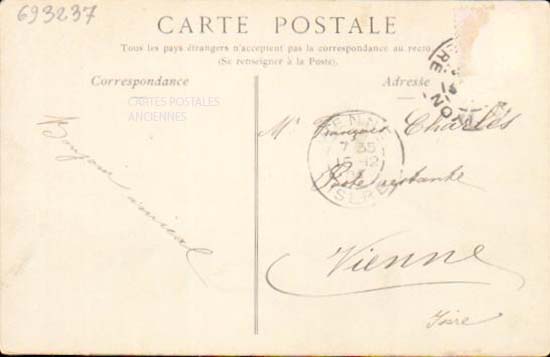 693237
CARTE POSTALE
Tous les pays étrangers n'acceptent pas la correspondance au recto
(Se renseigner à la Poste).
Correspondance
Adresse
CARTES POSTALES
ANCIENNES
Bonjour amical
Mr François Charles
Poste restante
Vienne
Isère
VIENNE
7 35
15 12
ISERE